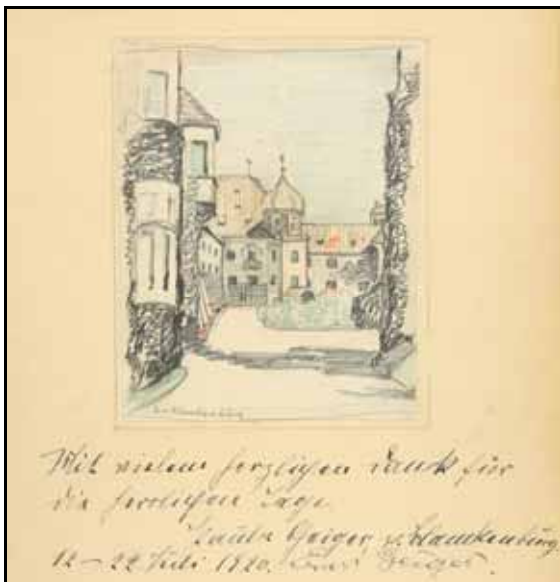 Mit vielem herzlichen Dank für
die herrlichen Tage.
Geiger v. Blankenburg
12 – 22 Juli 1920. Geiger.